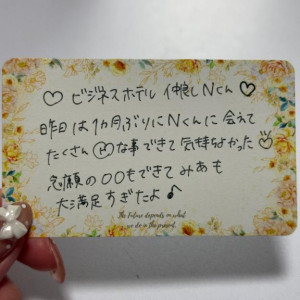 ♡ ビジネスホテル 仲良しNくん ♡
昨日は1カ月ぶりにNくんに会えて
たくさん Hな事できて気持ちよかった♡
念願の〇〇もできてみあも
大満足すぎたよ♪
The Future depends on what
we do in the present.